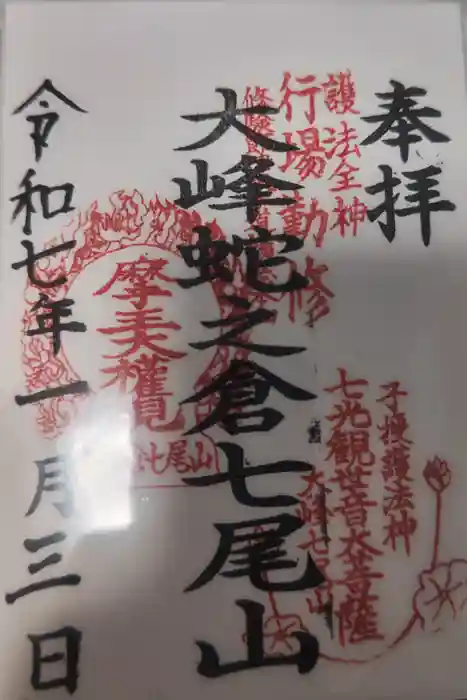 奉拝
護法全神
行場動修
大峰蛇之倉七尾山
子授護法神
七光観世音大菩薩
大峰七尾山
摩美権現
七尾山
令和七年一月三日